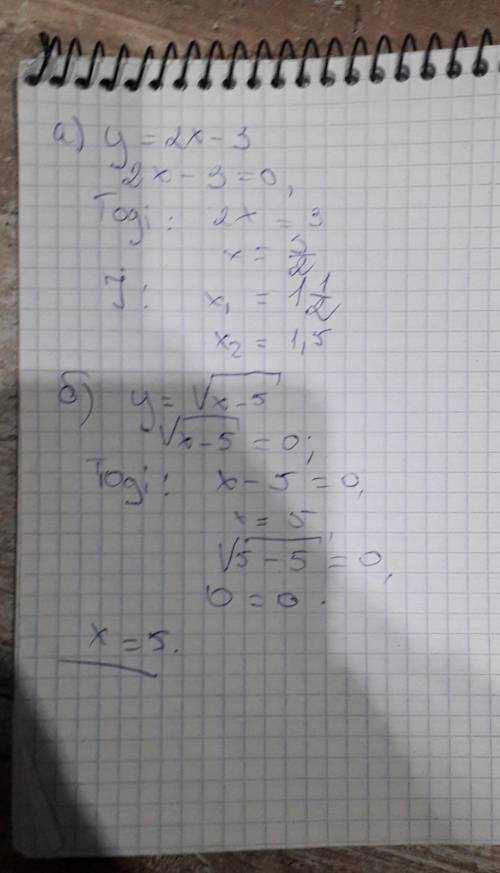 а) y = 2x - 3
2x - 3 = 0,
Тоді: 2x = 3
x = 3/2
x₁ = 1 1/2
x₂ = 1,5
б) y = √(x-5)
√(x-5) = 0;
Тоді: x - 5 = 0,
x = 5
√(5-5) = 0,
0 = 0.
x = 5.